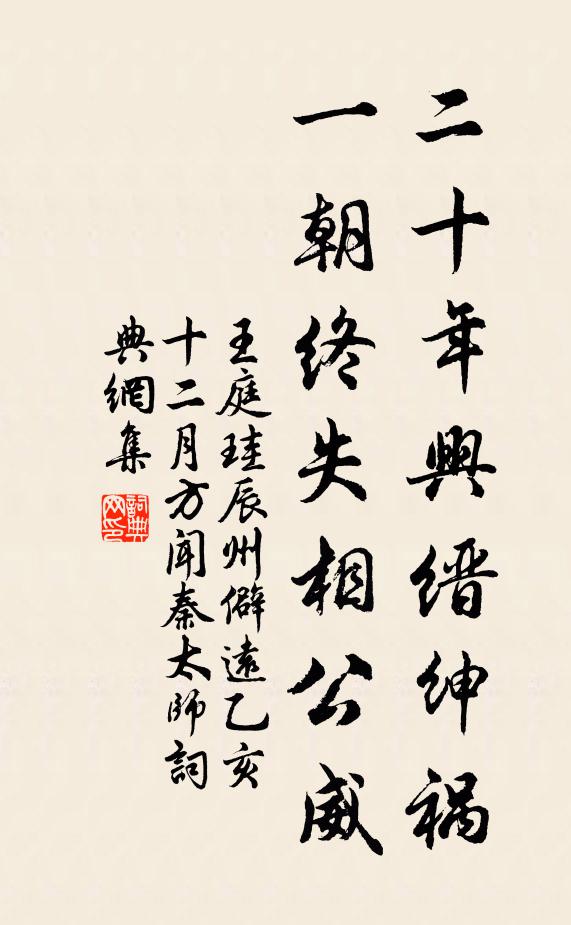 二十年興缙绅祸
一朝终失相公威
王庭珪辰州僻遠乙亥
十二月方闻秦太师詞
典網集
詞典网印